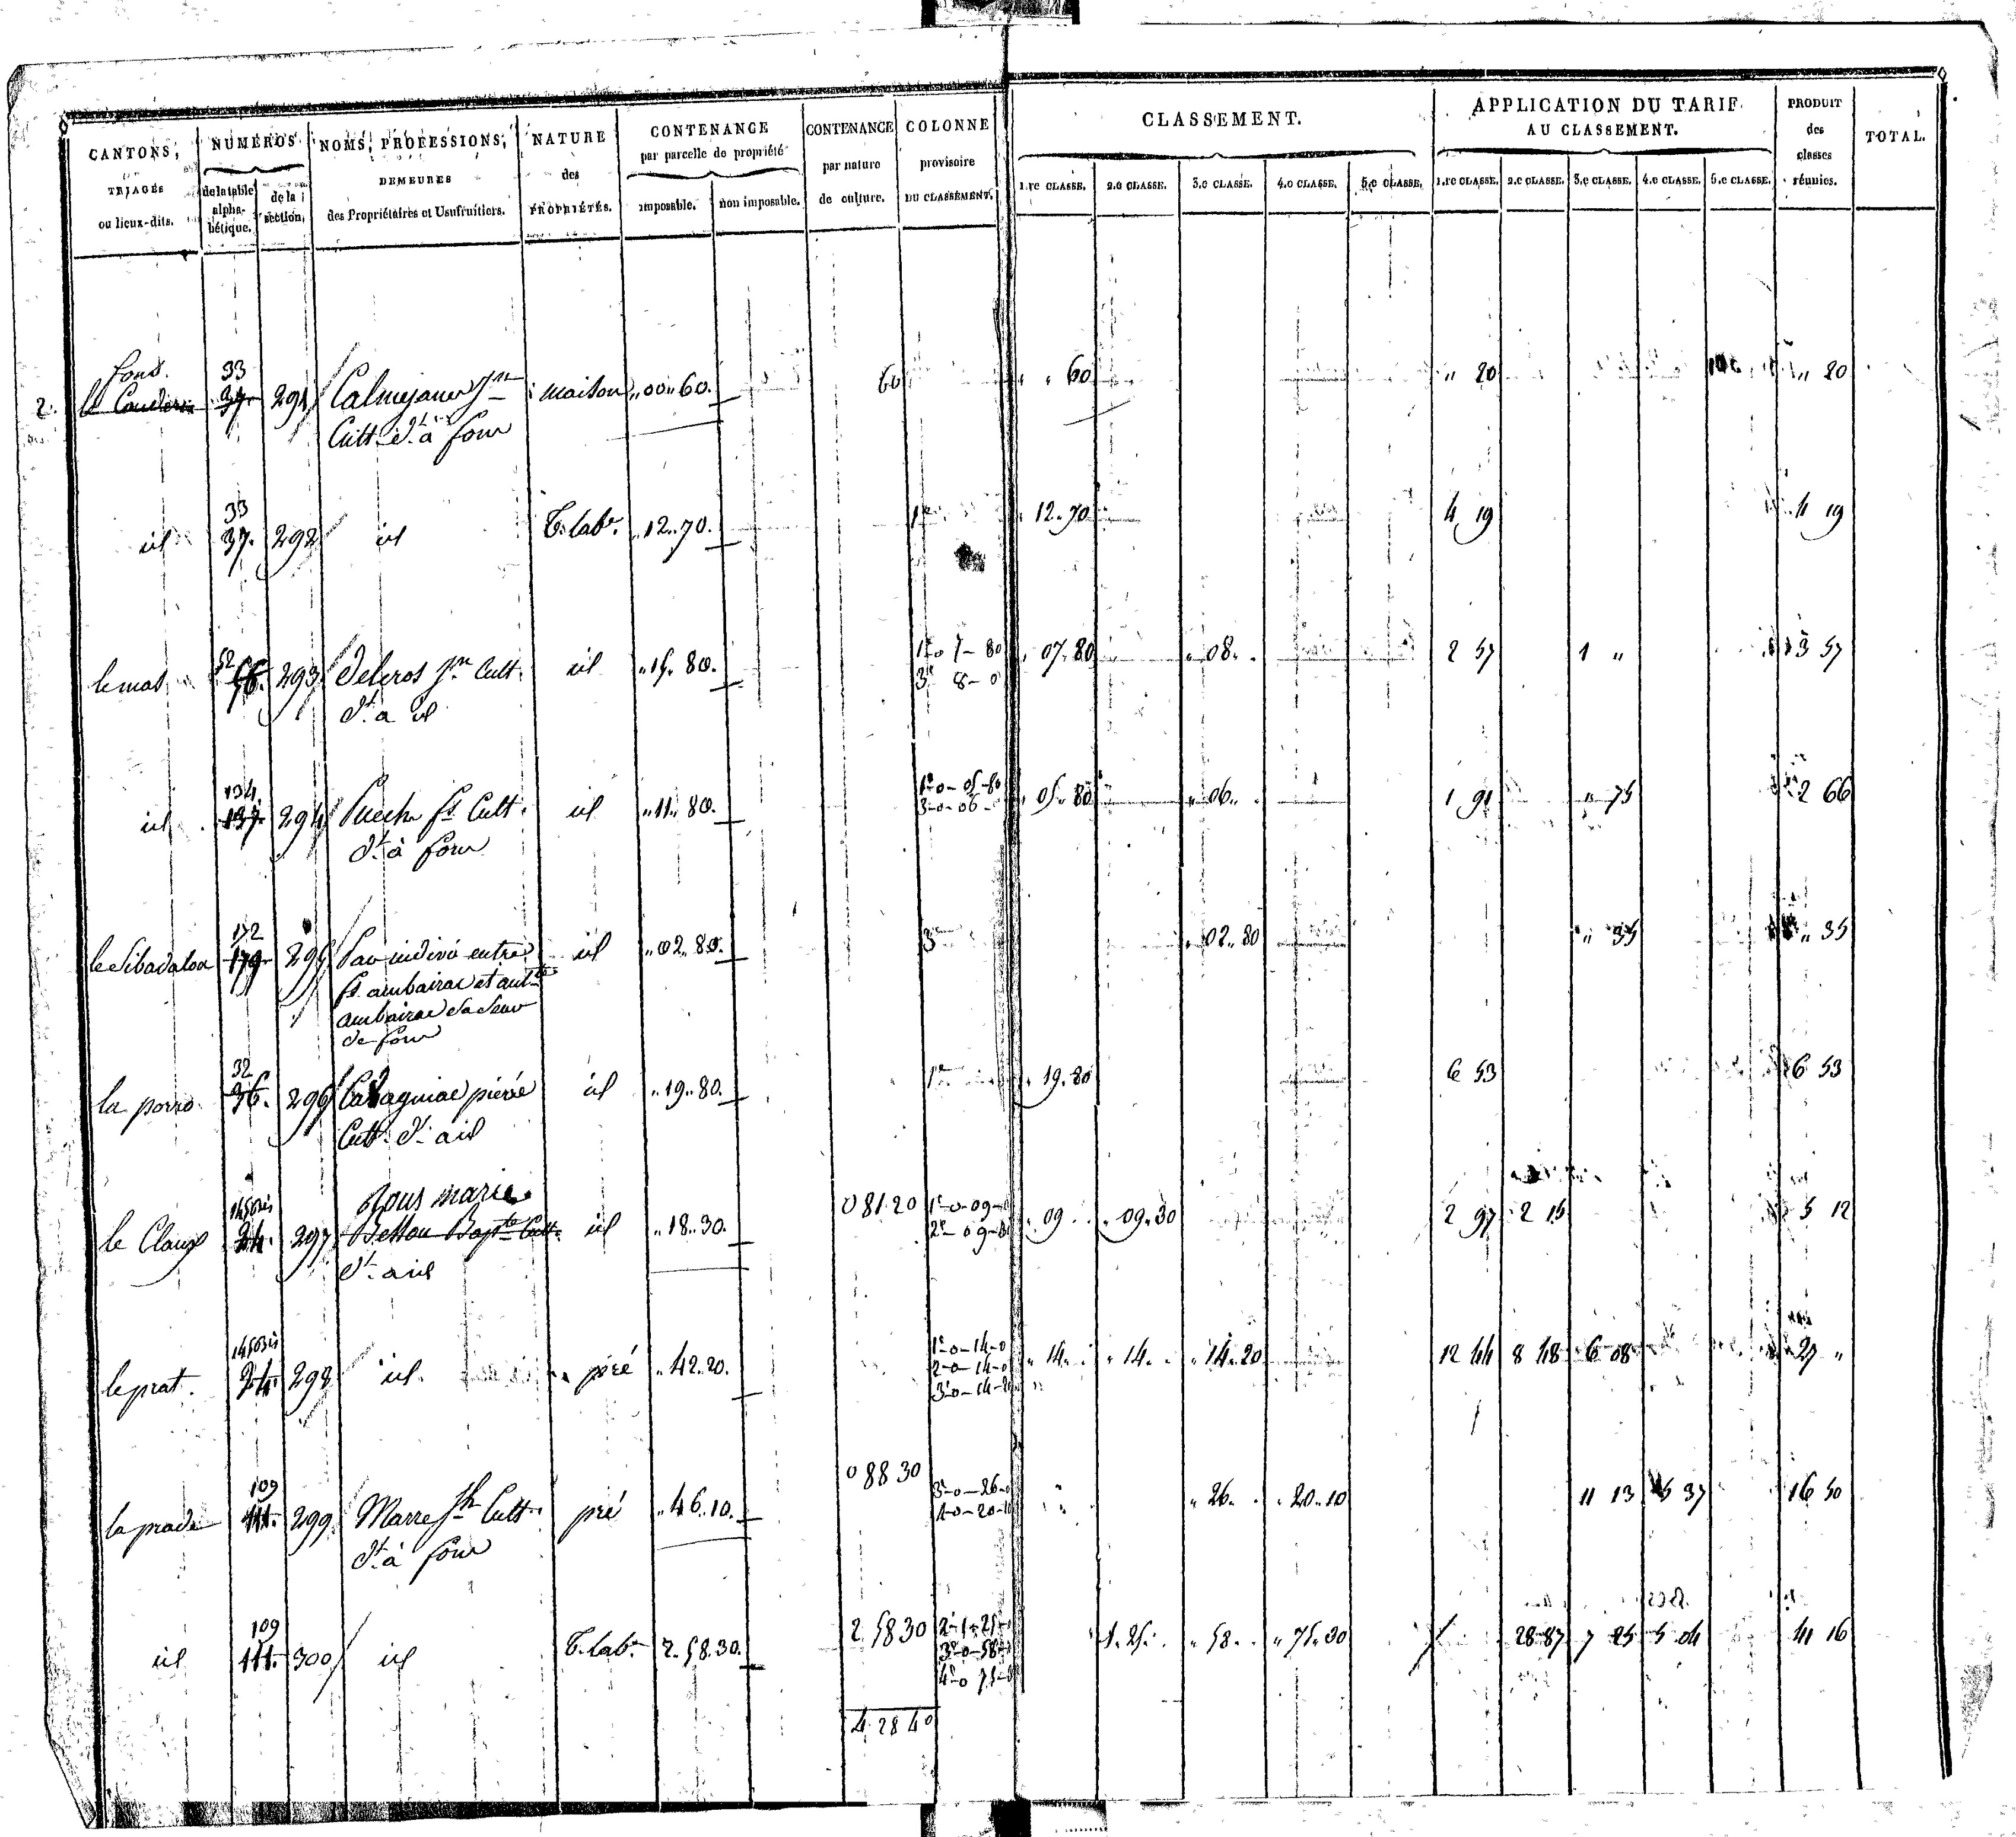 CANTONS, TRIAGES ou lieux-dits. NUMÉROS de la table alphabétique. de la section. NOMS, PROFESSIONS, DEMEURES des Propriétaires et Usufruitiers. NATURE des PROPRIÉTÉS. CONTENANCE par parcelle de propriété imposable. non imposable. CONTENANCE par nature de culture. COLONNE provisoire DU CLASSEMENT. CLASSEMENT. 1.re CLASSE. 2.e CLASSE. 3.e CLASSE. 4.e CLASSE. 5.e CLASSE. APPLICATION DU TARIF AU CLASSEMENT. 1.re CLASSE. 2.e CLASSE. 3.e CLASSE. 4.e CLASSE. 5.e CLASSE. PRODUIT des classes réunies. TOTAL.
fons. 33
37 291 Calmejane Jn maison „ 00 „ 60. 60 „ „ 60 „ 20 „ 20
Cult. dt. à fons
33
id 37. 292 id T. labe. „ 12 „ 70. 1re „ 12 „ 70 4 19 4 19
52
le mas 293 Delcros Jn Cult. id „ 15 „ 80. 1re 0 7 - 80 „ 07 „ 80 „ 08 „ „ 2 57 1 „ 3 57
dt. a id 3e 8 - 0
134
id 137 294 Puech fs Cult. id „ 11 „ 80. 1e 0 - 05 - 80 „ 05 „ 80 „ 06 „ „ 1 91 „ 75 2 66
dt. à fons 3 - 0 - 06 -
172
179 295 Par indivis entre id „ 02 „ 80. 3e „ 02 „ 80 „ 35 „ 35
fs ambairac et ant.
ambairac sa sœur
de fons
32
36. 296 pierre id „ 19 „ 80. 1re „ 19 „ 80 6 53 6 53
Cult. dt. a id
145 bis rous marie
le Claux 24. 297 Bapte Cult. id „ 18 „ 30. 0 81 20 1e 0 - 09 - 0 „ 09 „ „ „ 09 „ 30 2 97 2 15 5 12
dt. a id 2e 09 - 30
145 bis
le prat. 24. 298 id. pré „ 42 „ 20. 1e 0 - 14 - 0 „ 14 „ „ „ 14 „ „ „ 14 „ 20 12 44 8 48 6 08 27 „
2 - 0 - 14 - 0
3e 0 - 14 - 20
109 0 88 30
la prade 111. 299 Marre Jh Cult. pré „ 46 „ 10. 3e 0 - 26 - 0 „ 26 „ „ „ 20 „ 10 11 13 5 37 16 50
dt. à fons 4 - 0 - 20 - 10
109
id 111. 300 id T. labe. 2 „ 58 „ 30. 2 58 30 2e 1 - 25 - 0 1 „ 25 „ „ „ 58 „ „ „ 75 „ 30 28 87 7 25 5 04 41 16
3e 0 - 58 - 0
4e 0 75 - 30
4 28 40